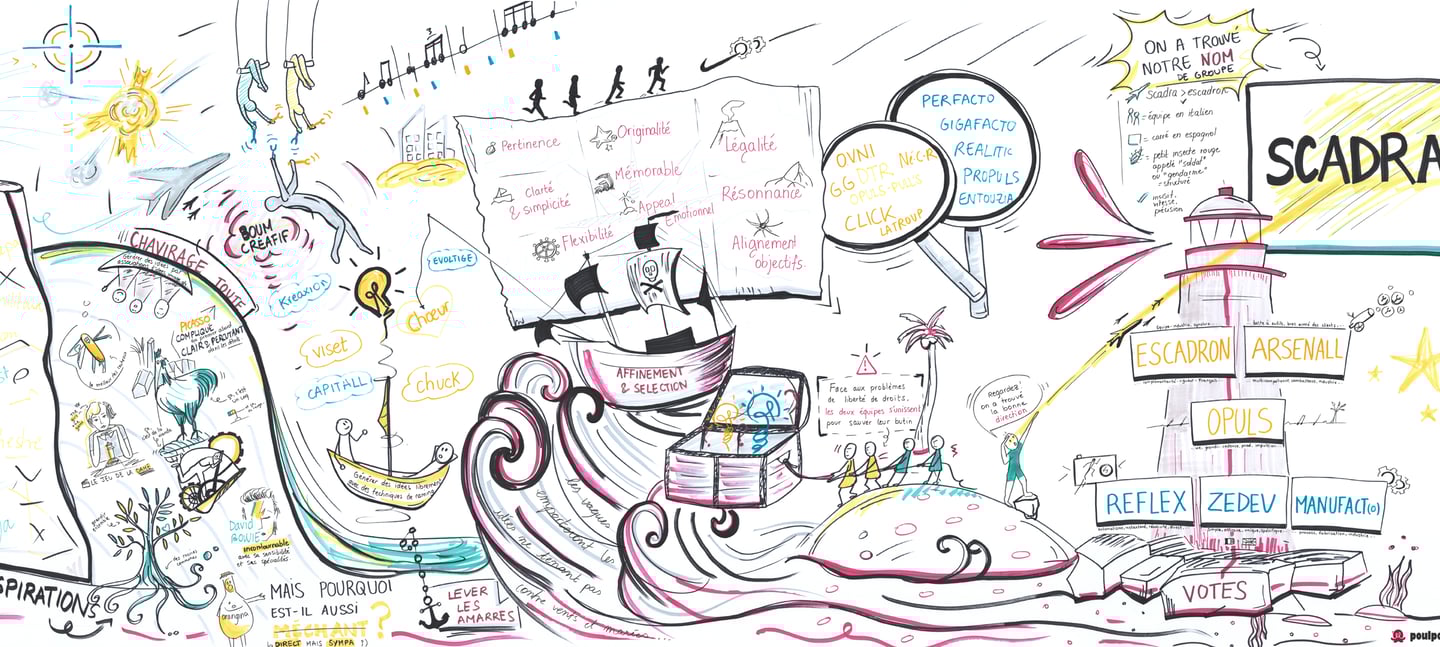 SPIRATIONS
CHAVIRAGE TOUTE
Générer des idées par
BOUM
CRÉATIF
PICASSO
COMPLIQUÉ
CLAIR & PERCUTANT
LE JEU DE LA DAME
David
BOWIE
incontournable
avec sa sensibilité
et ses spécialités
orangina
MAIS POURQUOI
EST-IL AUSSI
MÉCHANT ?
DIRECT MAIS SYMPA !)
Kreaxion
EVOLTIGE
Chœur
viset
CAPITALL
chuck
Générer des idées librement
avec des techniques de naming
LEVER
LES
AMARRES
3
Pertinence
Originalité
Légalité
Clarté
& simplicité
Mémorable
Résonnance
Flexibilité
Appeal
Emotionnel
Alignement
objectifs
AFFINEMENT
& SELECTION
les vagues
emportent les
idées ne tenant pas
contre vents et marées...
OVNI
NéCR
GG DTR
OPUS-PULS
CLICK
LATROUP
PERFACTO
GIGAFACTO
REALITIC
PROPULS
ENTOUZIA
Face aux problèmes
de liberté de droits,
les deux équipes s'unissent
pour sauver leur butin
Regardez!
on a trouvé
la bonne
direction
ON A TROUVÉ
NOTRE NOM
DE GROUPE
Scadra > escadron
= équipe en italien
= carré en espagnol
= petit insecte rouge
appelé "soldat"
ou "gendarme"
= structuré
= incisif,
vitesse,
précision
SCADRA
ESCADRON
ARSENALL
OPULS
REFLEX
ZEDEV
MANUFACT(O)
VOTES
poulpo